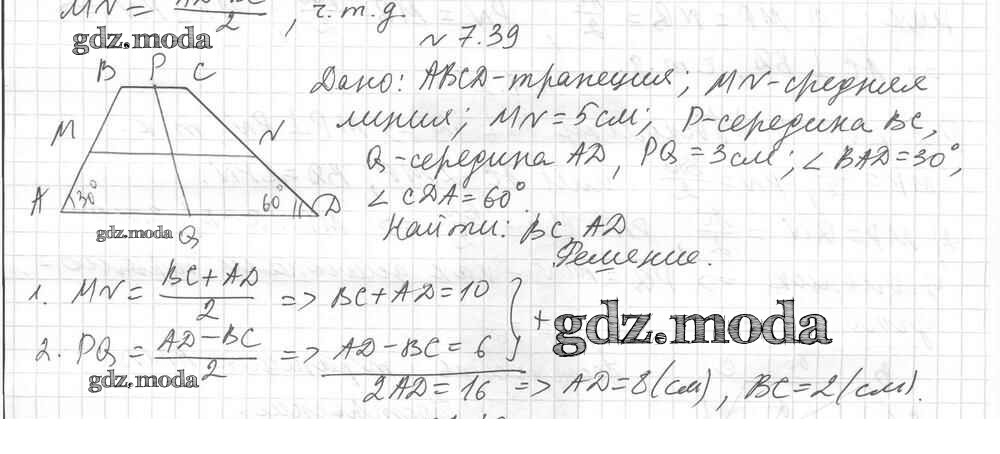 MN = AD+BC / 2 , ч.т.д.
gdz.moda
№ 7.39
B P C
Дано: ABCD-трапеция; MN-средняя
M N
линия; MN=5см; P-середина BC,
Q-середина AD, PQ=3см; ∠BAD=30°,
A 30° 60° D
∠CDA=60°.
gdz.moda Q
Найти: BC, AD
Решение.
1. MN = BC+AD / 2 => BC+AD=10
+
gdz.moda
2. PQ = AD-BC / 2 => AD-BC=6
gdz.moda
2AD=16 => AD=8(см), BC=2(см).